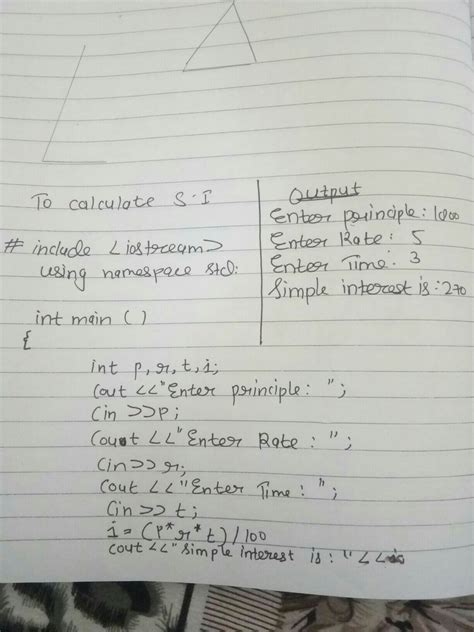 To calculate S.I
# include <iostream>
using namespace std:
int main ()
{
int p, r, t, i;
Cout <<"Enter principle: ";
Cin >>P;
Cout <<"Enter Rate : ";
Cin>> r;
Cout <<"Enter Time : ";
Cin >> t;
i = (P*r*t)/100
cout <<"Simple interest is : "<<
Output
Enter principle: 1000
Enter Rate: 5
Enter Time: 3
Simple interest is: 270